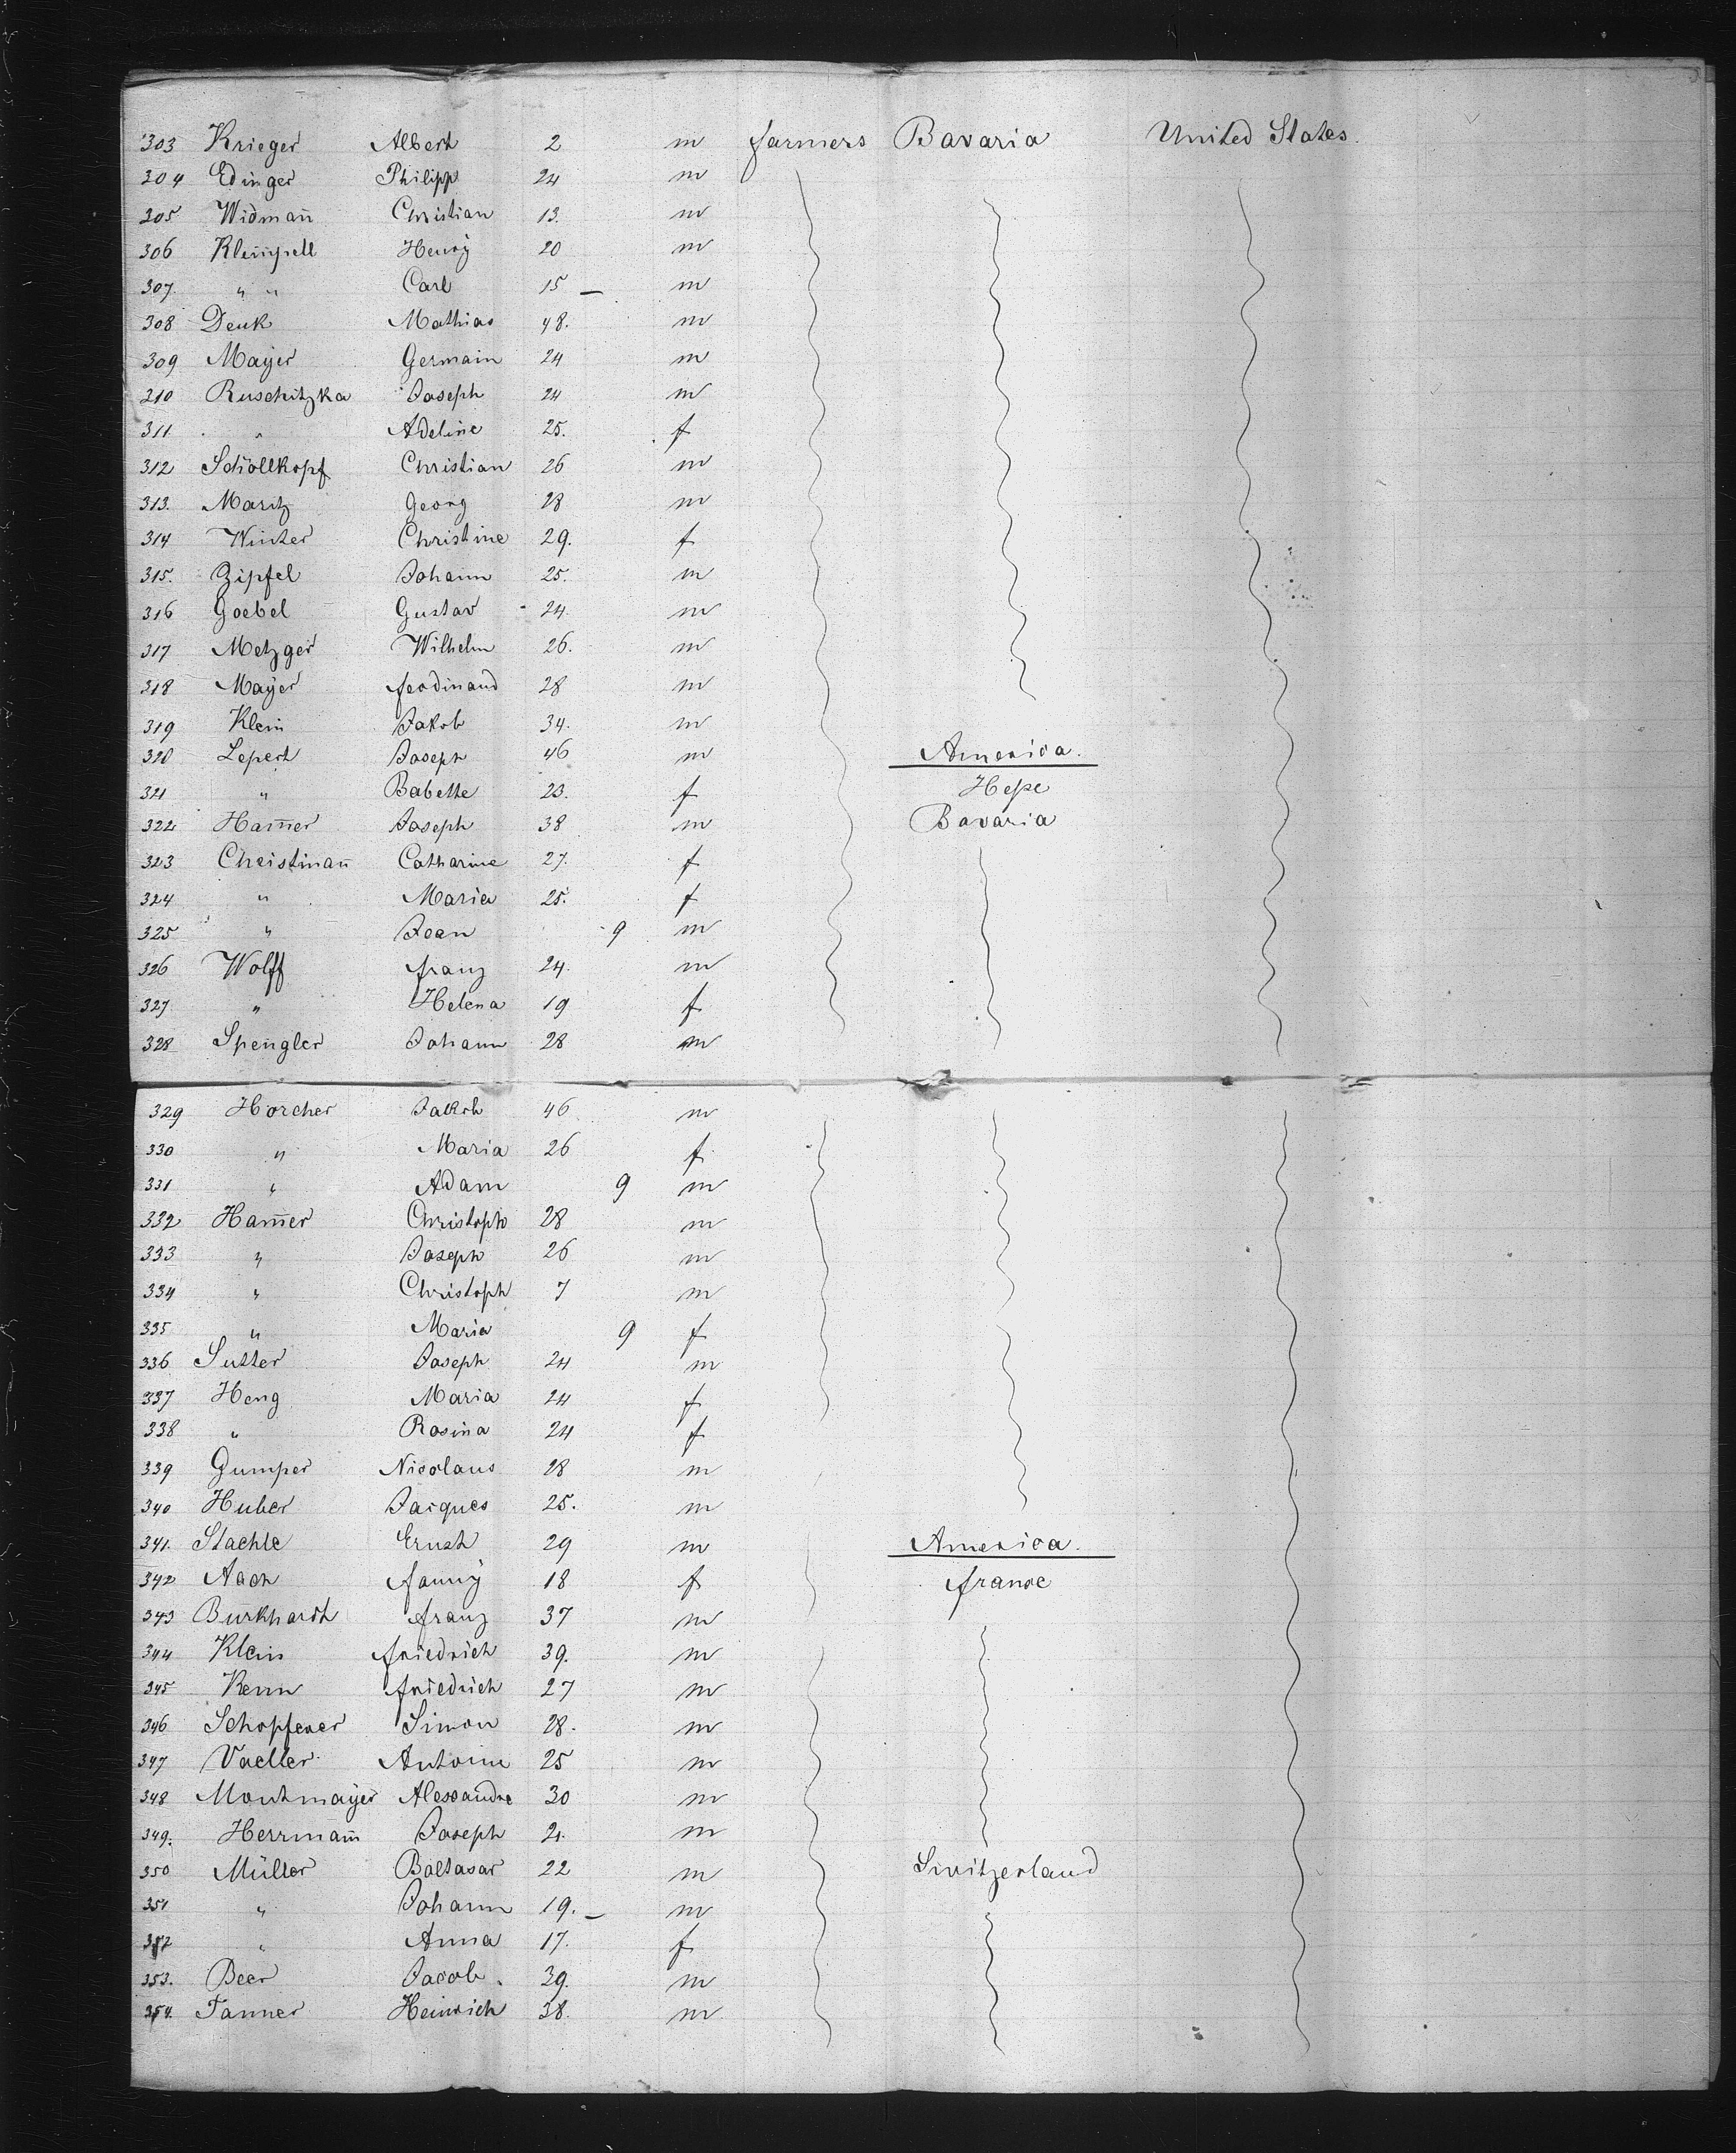 303 Krieger Albert 2 m farmers Bavaria United States.
304 Edinger Philipp 24 m
305 Widman̄ Christian 13. m
306 Henry 20 m
307. " " Carl 15 — m
308 Denk Mathias 48. m
309 Mayer Germain 24 m
310 Ruschitzka Joseph 24 m
311. " Adeline 25. f
312 Schöllkopf Christian 26 m
313. Maritz Georg 28 m
314 Winter Christine 29. f
315. Zipfel Johann 25. m
316 Goebel Gustav 24. m
317 Metzger Wilhelm 26. m
318 Mayer ferdinand 28 m
319 Klein Jakob 34. m
320 Lepert Joseph 46 m America.
321 " Babette 23. f Heße
322 Ham̄er Joseph 38 m Bavaria
323 Christman̄ Catharine 27. f
324 " Maria 25. f
325 " Jean 9 m
326 Wolff franz 24. m
327. " Helena 19 f
328 Spengler Johann 28 m
329 Horcher Jakob 46 m
330 " Maria 26 f
331 " Adam 9 m
332 Ham̄er Christoph 28 m
333 " Joseph 26 m
334 " Christoph 7 m
335 " Maria 9 f
336 Sutter Joseph 24 m
337 Heng Maria 24 f
338 " Rosina 24 f
339 Gumper Nicolaus 28 m
340 Huber Jacques 25. m
341. Staehle Ernst 29 m America.
342 Aach fanny 18 f france
343 Burkhardt franz 37 m
344 Klein friedrich 39. m
345 Kenn friedrich 27 m
346 Schopferer Simon 28. m
347 Vaeller Antoine 25 m
348 Montmayer Alexandre 30 m
349. Herrman̄ Joseph 21. m
350 Müller Baltasar 22 m Switzerland
351 " Johann 19. — m
352 " Anna 17. f
353. Beer Jacob. 39. m
354. Tanner Heinrich 38. m